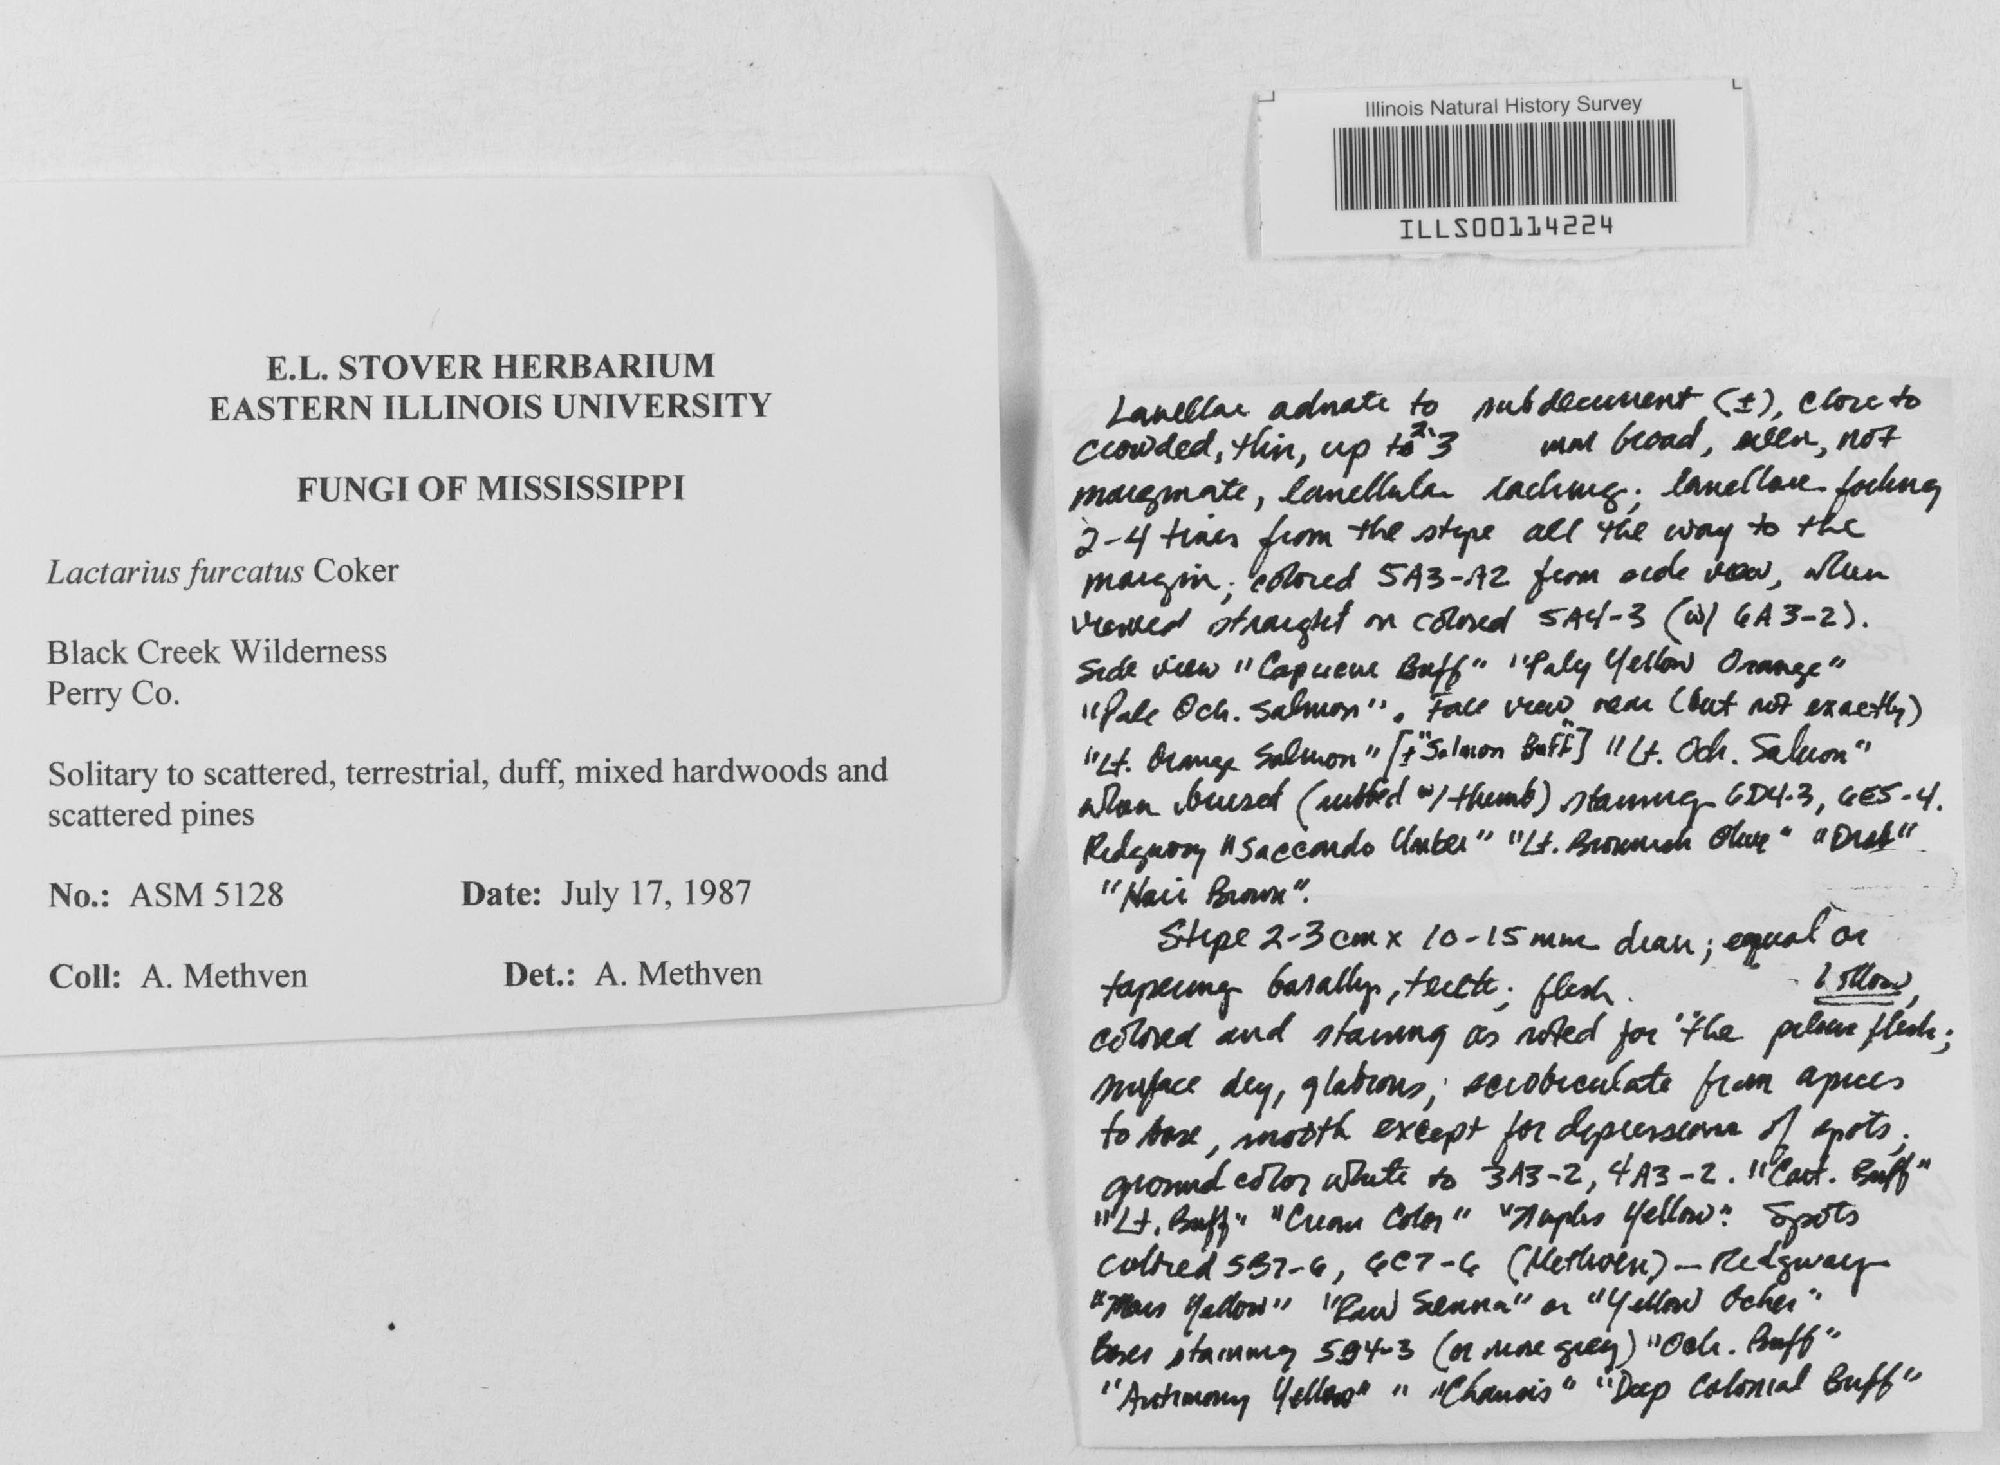 Illinois Natural History Survey
ILLS00114224
E.L. STOVER HERBARIUM
EASTERN ILLINOIS UNIVERSITY
FUNGI OF MISSISSIPPI
Lactarius furcatus Coker
Black Creek Wilderness
Perry Co.
Solitary to scattered, terrestrial, duff, mixed hardwoods and
scattered pines
No.: ASM 5128 Date: July 17, 1987
Coll: A. Methven Det.: A. Methven
Lamellae adnate to subdecurrent (±), close to
crowded, thin, up to 3 mm broad, even, not
marginate, lamellulae lacking; lamellae forking
2-4 times from the stipe all the way to the
margin; colored 5A3-A2 from side view, when
viewed straight on colored 5A4-3 (w/ 6A3-2).
Side view "Capucine Buff" "Paly Yellow Orange"
"Pale Och. Salmon". Face view near (but not exactly)
"Lt. Orange Salmon" [± "Salmon Buff"] "Lt. Och. Salmon"
when bruised (rubbed w/ thumb) staining 6D4-3, 6E5-4.
Ridgway "Saccardo Umber" "Lt. Brownish Olive" "Drab"
"Hair Brown".
Stipe 2-3 cm x 10-15 mm diam; equal or
tapering basally, terete; flesh hollow,
colored and staining as noted for the pileus flesh;
surface dry, glabrous; scrobiculate from apices
to base, smooth except for depressions of spots;
ground color white to 3A3-2, 4A3-2. "Cart. Buff"
"Lt. Buff" "Cream Color" "Naples Yellow". Spots
colored 5B7-6, 6C7-6 (Methven) — Ridgway
"Mars Yellow" "Raw Sienna" or "Yellow Ocher"
Bases staining (or more grey) "Och. Buff"
"Antimony Yellow" " "Chamois" "Deep Colonial Buff"